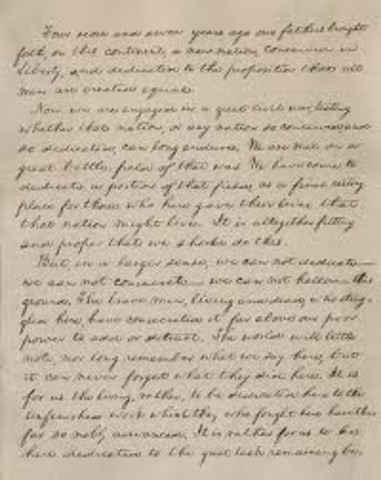 Four score and seven years ago our fathers brought
forth, on this continent, a new nation, conceived in
Liberty, and dedicated to the proposition that all
men are created equal.
Now we are engaged in a great civil war, testing
whether that nation, or any nation so conceived and
so dedicated, can long endure. We are met on a
great battle-field of that war. We have come to
dedicate a portion of that field, as a final resting
place for those who here gave their lives that
that nation might live. It is altogether fitting
and proper that we should do this.
But, in a larger sense, we can not dedicate—
we can not consecrate—we can not hallow—this
ground. The brave men, living and dead, who strug-
gled here, have consecrated it far above our poor
power to add or detract. The world will little
note, nor long remember what we say here, but
it can never forget what they did here. It is
for us the living, rather, to be dedicated here to the
unfinished work which they who fought here have thus
far so nobly advanced. It is rather for us to be
here dedicated to the great task remaining be-